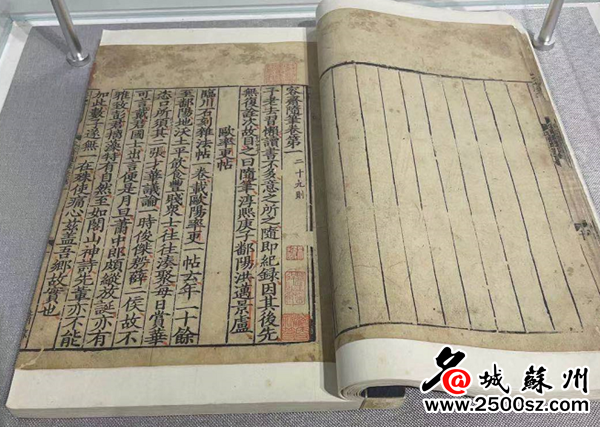 容齋隨筆卷第一 二十九則
予老去習懶讀書不多意之所之隨即紀錄因其後先
無復詮次故目之曰隨筆淳熙庚子鄱陽洪邁景盧
歐率更帖
臨川石刻雜法帖一卷載歐陽率更一帖云年二十餘
至鄱陽地沃土平飲食豐賤衆士往往湊聚每日賞華
恣口所須其二張才華議論一時俊傑殷薛二侯故不
可言戴君國士出言便是月旦蕭中郎頗縱放誕亦有
雅致彭君摛藻特有自然至如閣山神詩先輩亦不能
加此數子遂無一在殊使痛心兹蓋吾鄉故實也
名@城蘇州
www.2500sz.com